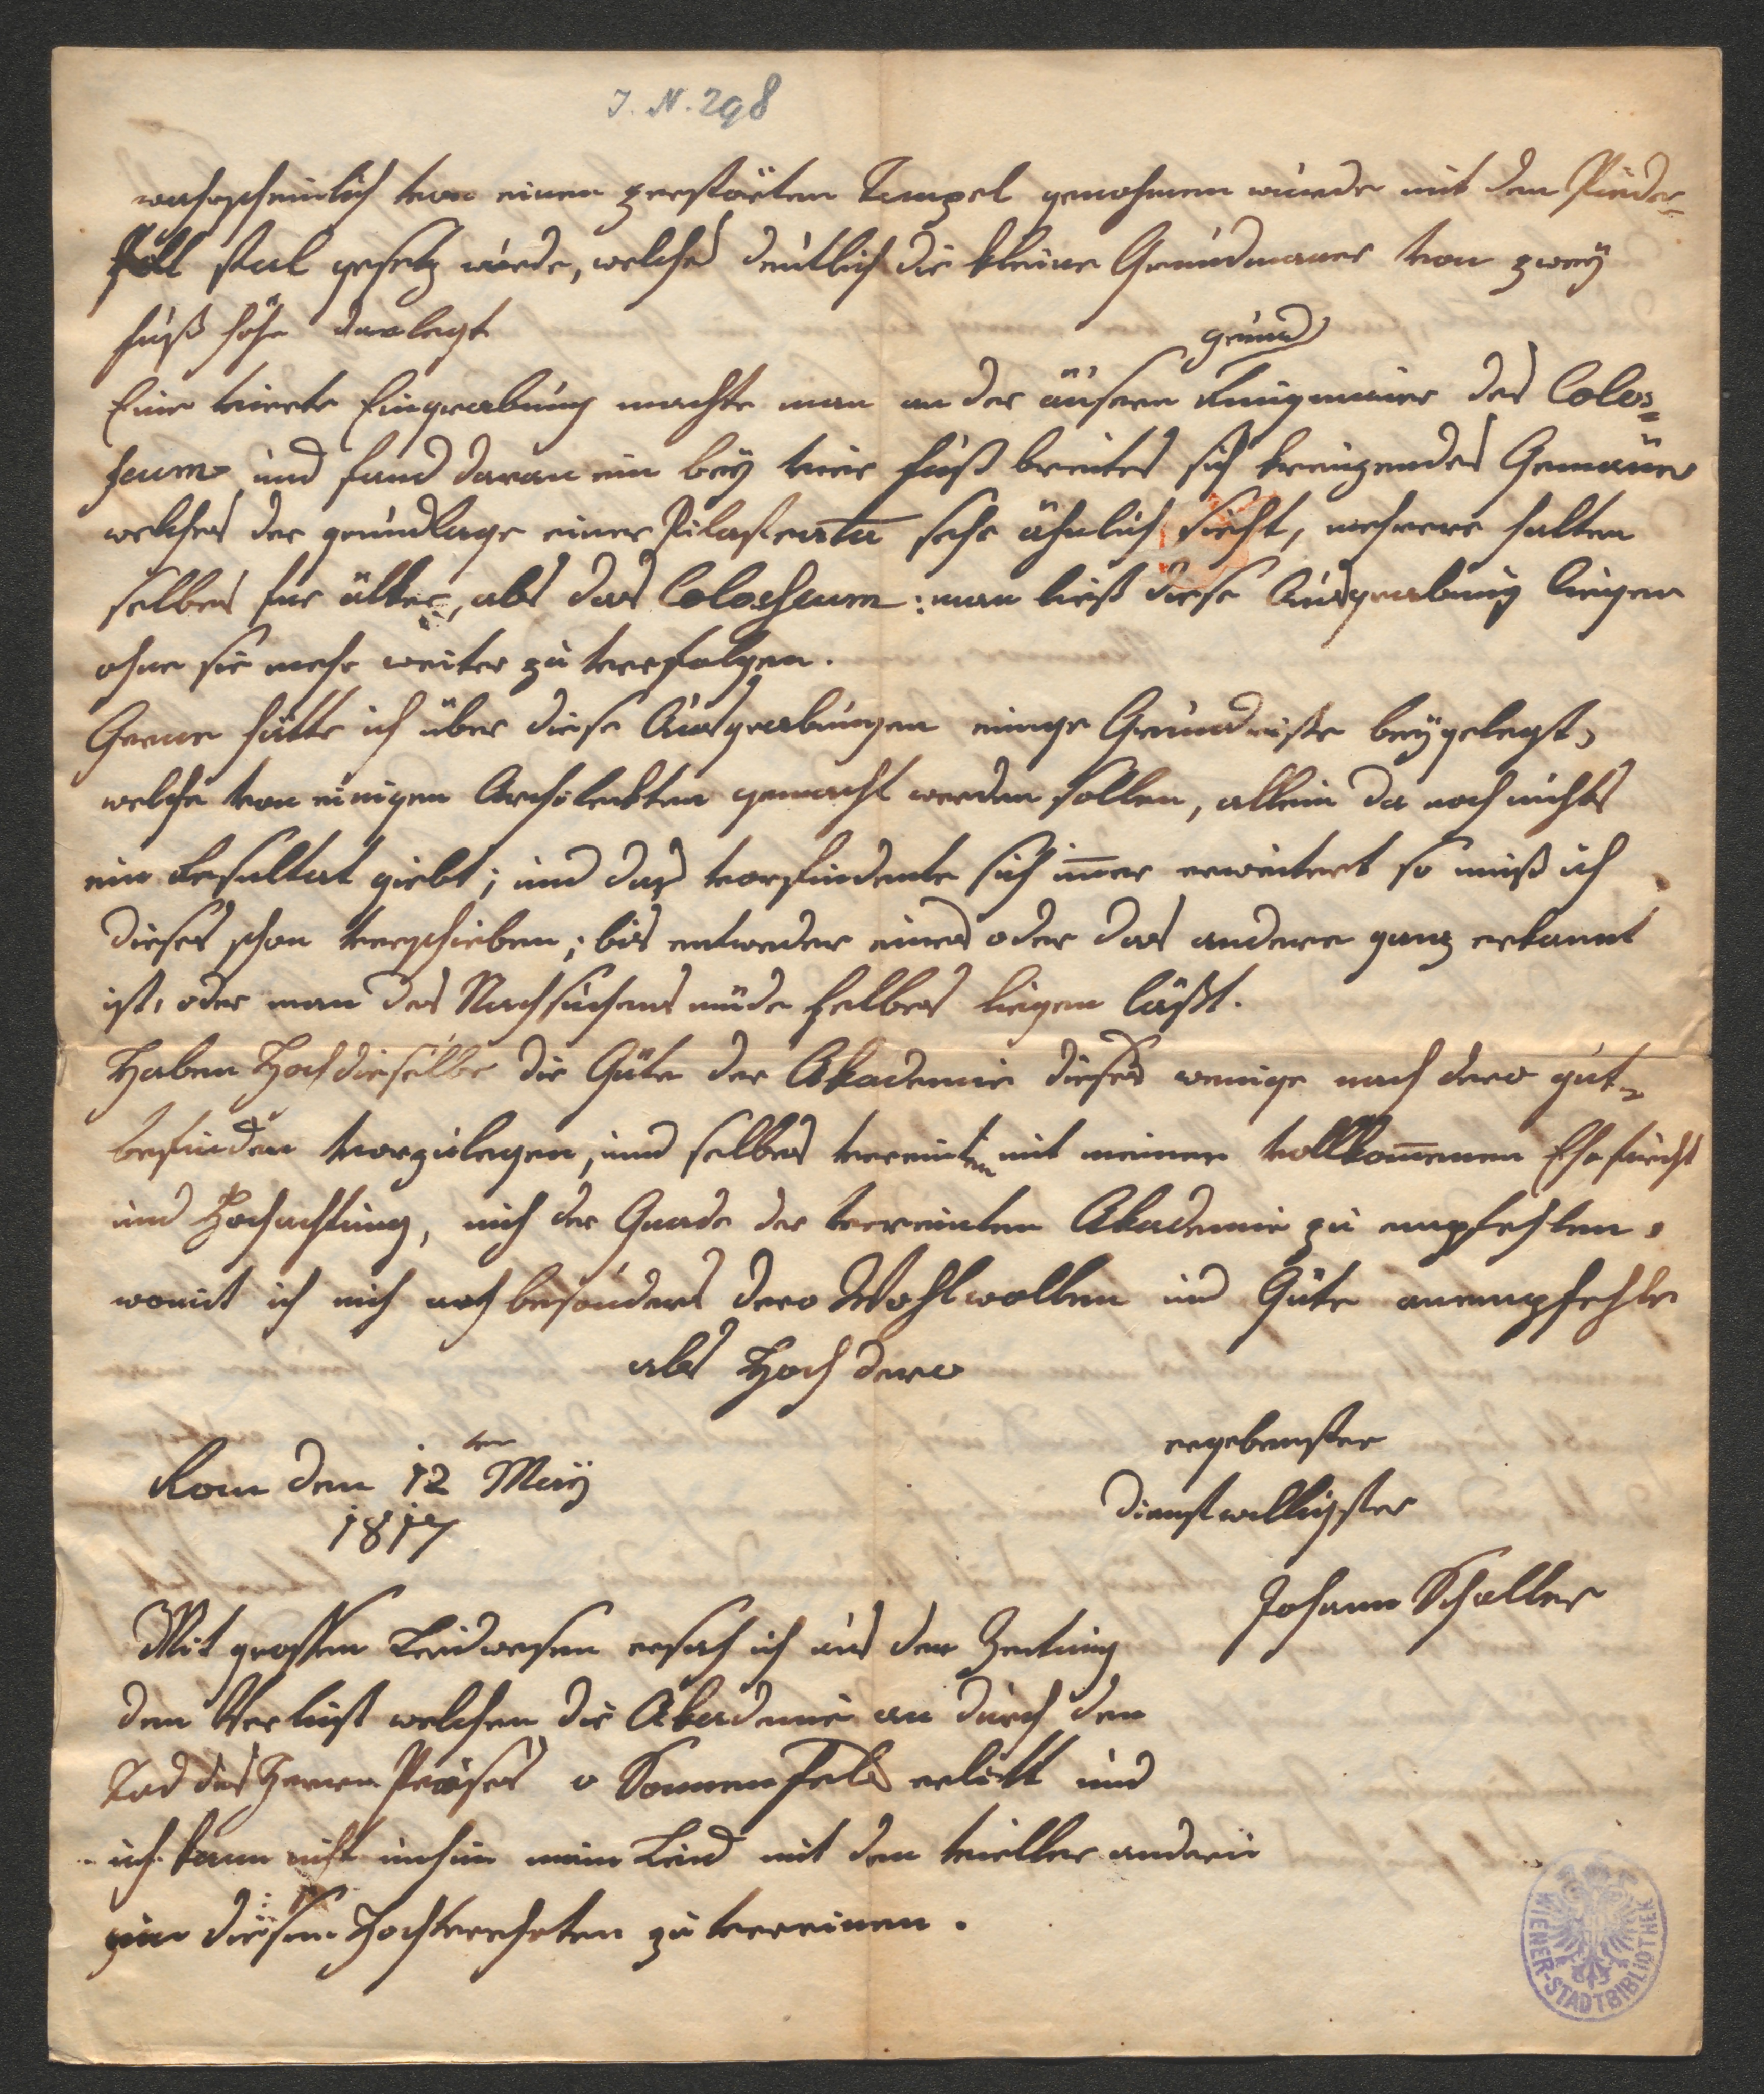 J. N. 298
wahrscheinlich von einem zerstörten Tempel genohmen wurde mit dem Pieder=
stal gesetz wurde, welches deutlich die kleine Grundmauer von zwey
fuß höhe darlegt
Eine vierte Eingrabung machte man an der äusern Ringmauer des Colos=
grund
seum und fand daran ein bey vier fuß breites sich kreuzendes Gemäuer
welches der grundlage einer Pilasterata sehr ähnlich sieht, mehrere halten
selbes für älter, als das Colosseum: man ließ diese Ausgrabung liegen
ohne sie mehr weiter zu verfolgen.
Gerne hätte ich über diese Ausgrabungen einige Grundriße beygelegt,
welche von einigen Architeckten gemacht werden sollen, allein da noch nichts
ein Resultat giebt; und das vorfindente sich im̅er erweitert so muß ich
dieses schon verschieben; bis entweder eines oder das andere ganz erkannt
ist, oder man des Nachsuchens müde selbes liegen läßt.
Haben Hochdieselbe die Güte der Akademie dieses wenige nach dero gut=
befinden vorzulegen, und selbes vereinten mit meiner vollkom̅enen Ehrfurcht
und Hochachtung, mich der Gnade der vereinten Akademie zu empfehlen,
womit ich mich noch besonders dero Wohlwollen und Güte anempfehle
als Hoch dero
ergebenster
Rom den 12ten May
dienstwilligster
1817
Johann Schaller
Mit grossem Leidwesen ersah ich aus der Zeitung
den Verlust welchen die Akademie an durch den
Tod des Herren Präses v Sonnenfels erlitt und
ich kann nicht umhin mein Leid mit dem vieller andern
um diesen Hochverehrten zu vereinen.
WIENER-STADTBIBLIOTHEK